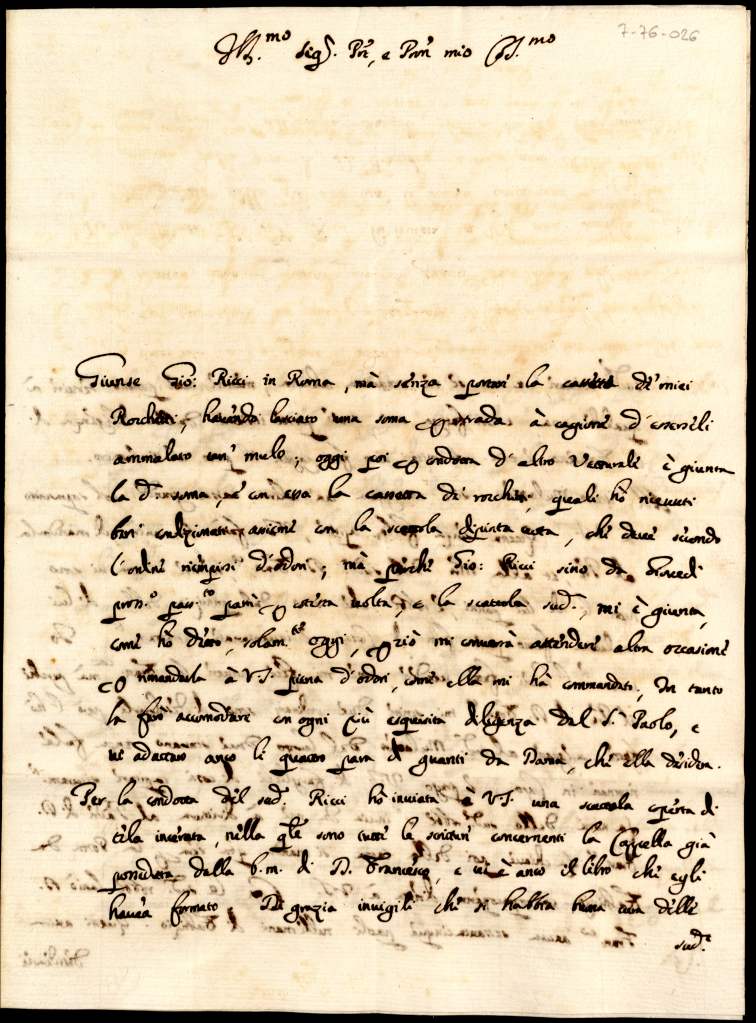 7-76-026
Ill.mo Sig.r Pñe, e Pron mio Col.mo
Giunse Gio: Ricci in Roma, mà senza portar la cassetta de' miei
Rocchetti, havendo lasciato una soma p strada à cagione d'essersili
ammalato un mulo; oggi poi p condotta d'altro Vetturale è giunta
la d.a soma, e con essa la cassetta di rocchetti, quali hò ricevuti
ben condizionati assieme con la scattola dipinta, che deve secondo
l'ordine riempirsi d'odori; mà perche Gio: Ricci sino da Giovedi
pross.o pass.to partì p cotesta volta, e la scattola sud.a mi è giunta,
come hò detto, solam.te oggi, p ciò mi converrà attendere altra occasione
p rimandarla à V.S. piena d'odori, come ella mi hà commandato. In tanto
la farò accomodare con ogni più esquisita diligenza dal S.r Paolo, e
vi adattarò anco li quattro para di guanti da Dama, che ella desidera.
Per la condotta del sud.o Ricci hò inviata à V.S. una scattola coperta di
tela incerata, nella q.le sono tutte le scritture concernenti la Cappella già
posseduta dalla b.m. di D. Francesco, e vi è anco il libro che egli
haveva formato. Di grazia invigili che si habbia buona cura delle
sud.e